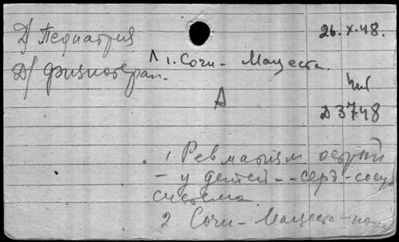 Д/ Педиатрия
26.X.48.
Д/ Физиотерап.
1. Сочи - Мацеста.
Д 3748
1 Ревматизм острый
- у детей - - серд-сосу
система.
2 Сочи - Мацеста -